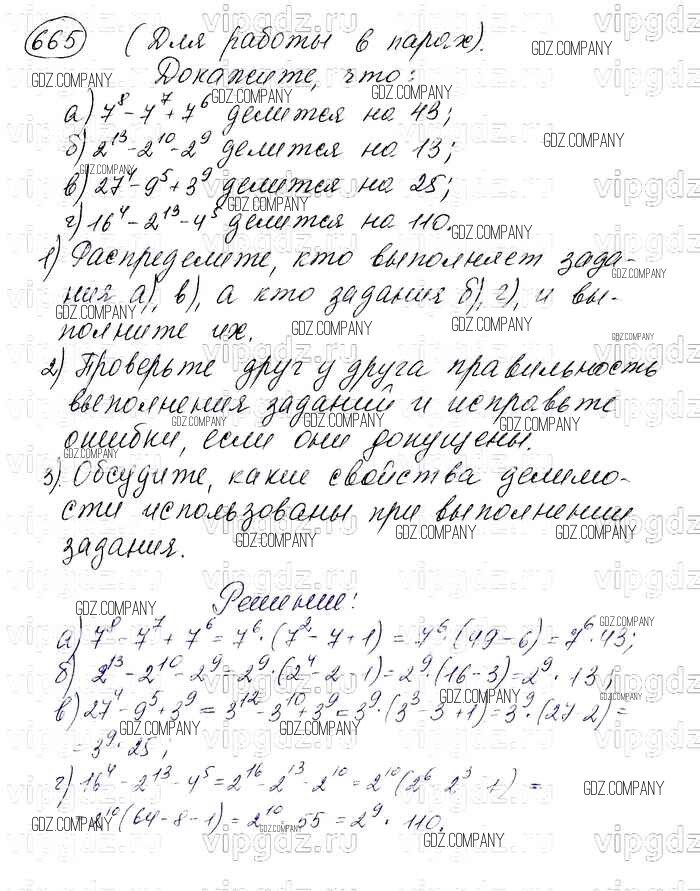 665 (Для работы в парах).
Докажите, что:
а) 7⁸ – 7⁷ + 7⁶ делится на 43;
б) 2¹³ – 2¹⁰ – 2⁹ делится на 13;
в) 27⁴ – 9⁵ + 3⁹ делится на 25;
г) 16⁴ – 2¹³ – 4⁵ делится на 110.
1) Распределите, кто выполняет зада-
ния а), в), а кто задания б), г), и вы-
полните их.
2) Проверьте друг у друга правильность
выполнения заданий и исправьте
ошибки, если они допущены.
3) Обсудите, какие свойства делимо-
сти использованы при выполнении
задания.
Решение:
а) 7⁸ – 7⁷ + 7⁶ = 7⁶ · (7² – 7 + 1) = 7⁶ · (49 – 6) = 7⁶ · 43;
б) 2¹³ – 2¹⁰ – 2⁹ = 2⁹ · (2⁴ – 2 – 1) = 2⁹ · (16 – 3) = 2⁹ · 13;
в) 27⁴ – 9⁵ + 3⁹ = 3¹² – 3¹⁰ + 3⁹ = 3⁹ · (3³ – 3 + 1) = 3⁹ · (27 – 2) =
= 3⁹ · 25;
г) 16⁴ – 2¹³ – 4⁵ = 2¹⁶ – 2¹³ – 2¹⁰ = 2¹⁰ (2⁶ – 2³ – 1) =
= 2¹⁰ (64 – 8 – 1) = 2¹⁰ · 55 = 2⁹ · 110.